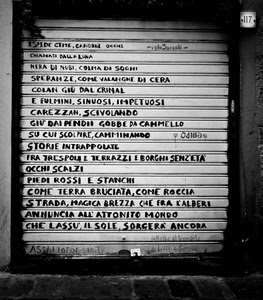 117
CHIAMATI DALLA LUNA
NERA DI NUBI, COLMA DI SOGNI
SPERANZE, COME VALANGHE DI CERA
COLAN GIÙ DAL CRINAL
E FULMINI, SINUOSI, IMPETUOSI
CAREZZAN, SCIVOLANDO
GIU' DAI PENDII GOBBE DA CAMMELLO
SU CUI SCOLPIRE, CAMMINANDO
STORIE INTRAPPOLATE
FRA TRESPOLI E TERRAZZI E BORGHI SENZ'ETÀ
OCCHI SCALZI
PIEDI ROSSI E STANCHI
COME TERRA BRUCIATA, COME ROCCIA
STRADA, MAGICA BREZZA CHE FRA L'ALBERI
ANNUNCIA ALL'ATTONITO MONDO
CHE LASSU', IL SOLE, SORGERÀ ANCORA